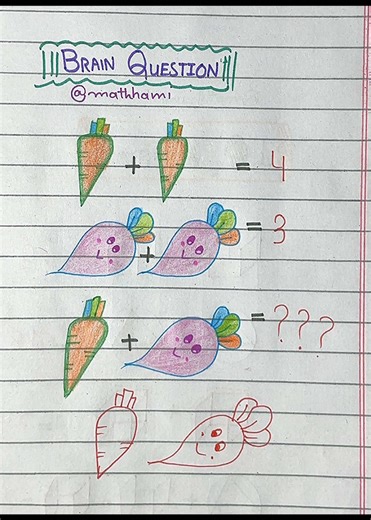 BRAIN QUESTION
@mathhami
+ = 4
+ = 3
+ = ???